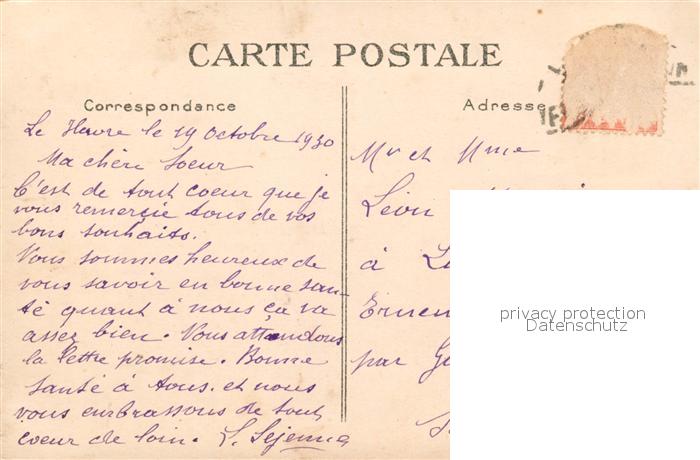 CARTE POSTALE
Correspondance
Le Havre le 19 Octobre 1930
Ma chère Soeur
C'est de tout coeur que je
vous remercie tous de vos
bons souhaits.
Vous sommes heureux de
vous savoir en bonne san-
té quant à nous ça va
assez bien. Vous attendons
la lettre promise. Bonne
santé à tous. et nous
vous embrassons de tout
coeur de loin.
Adresse
Mr et Mme
Léon
à
par
privacy protection
Datenschutz